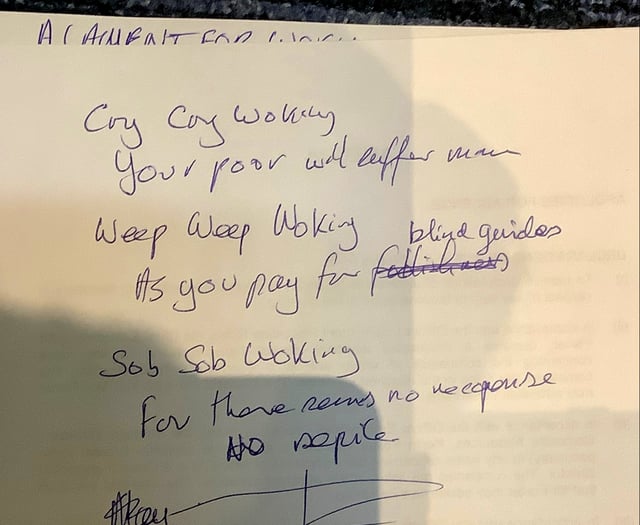 A LAMENT FOR WOKING
Cry Cry Woking
Your poor will suffer
Weep Weep Woking
blind guides
As you pay for foolishness
Sob Sob Woking
For there seems no
NO
#Pray